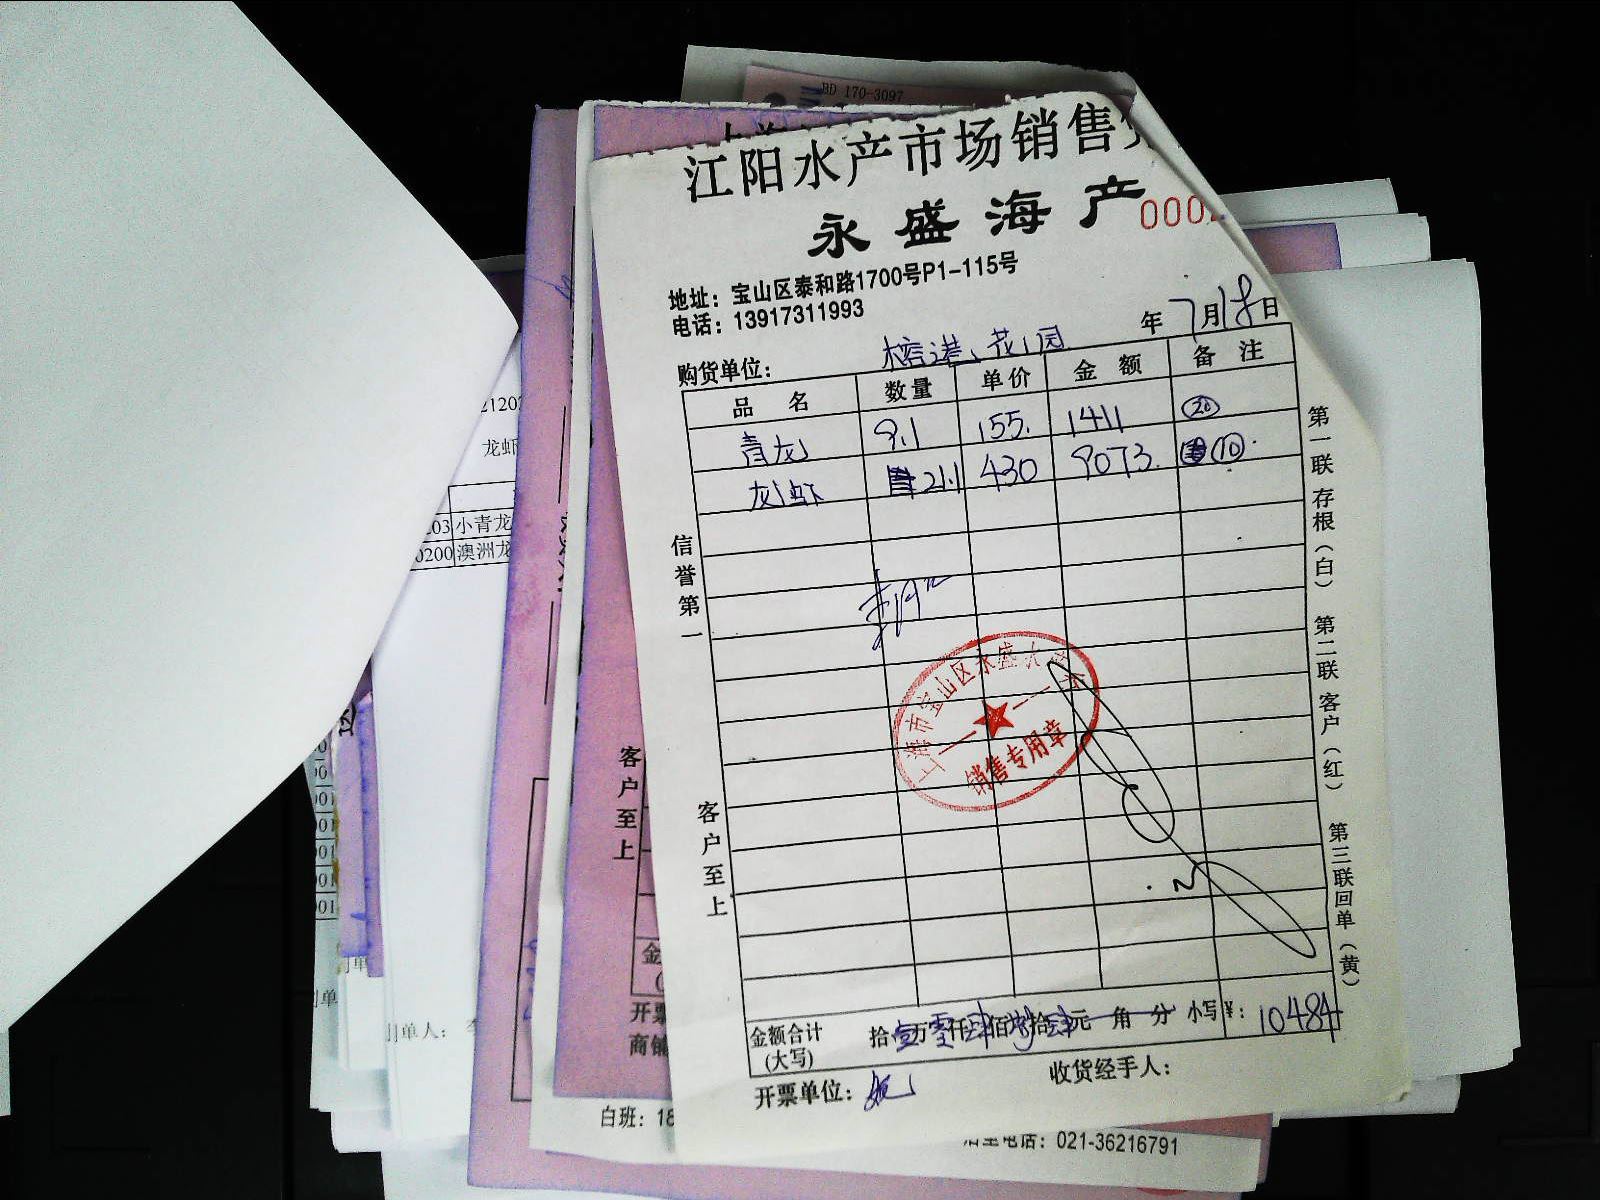 BD 170-3097
江阳水产市场销售
永盛海产
000
地址：宝山区泰和路1700号P1-115号
电话：13917311993
年7月18日
购货单位：榕港、花园
品名 数量 单价 金额 备注
青龙 9.1 155. 1411 20
龙虾 21.1 430 9073. 10
信誉第一
客户至上
第一联存根（白） 第二联客户（红） 第三联回单（黄）
上海市宝山区永盛水
销售专用章
金额合计(大写) 拾壹万零仟肆佰捌拾肆元角分 小写¥：10484
开票单位：
收货经手人：
2120
龙虾
203 小青龙
0200 澳洲龙
客户至上
开票
商铺
制单人：
白班：18
电话：021-36216791